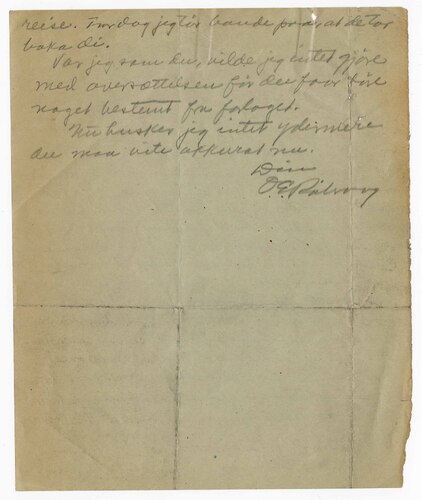 reise. Tør dog jeg tør bande paa, at de tør
boka di.
Var jeg som du, vilde jeg intet gjøre
med oversættelsen før du faar høre
noget bestemt fra forlaget.
Nu husker jeg intet ydermere
du maa vite akkurat nu.
Din
O E Rølvaag